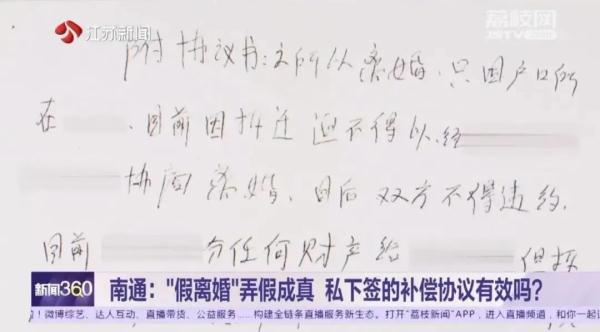 江苏新闻
荔枝网
JSTV.COM
附协议书:之所以离婚,只因户口所
在 目前因拆迁 迫不得以,经
协商离婚,日后双方不得违约.
目前 分任何财产给 但拆
新闻360
南通："假离婚"弄假成真 私下签的补偿协议有效吗？
！微博综艺、达人互动、直播带货、公益服务……构建全链条直播服务新生态。打开"荔枝新闻"APP，进入直播频道，和你一起